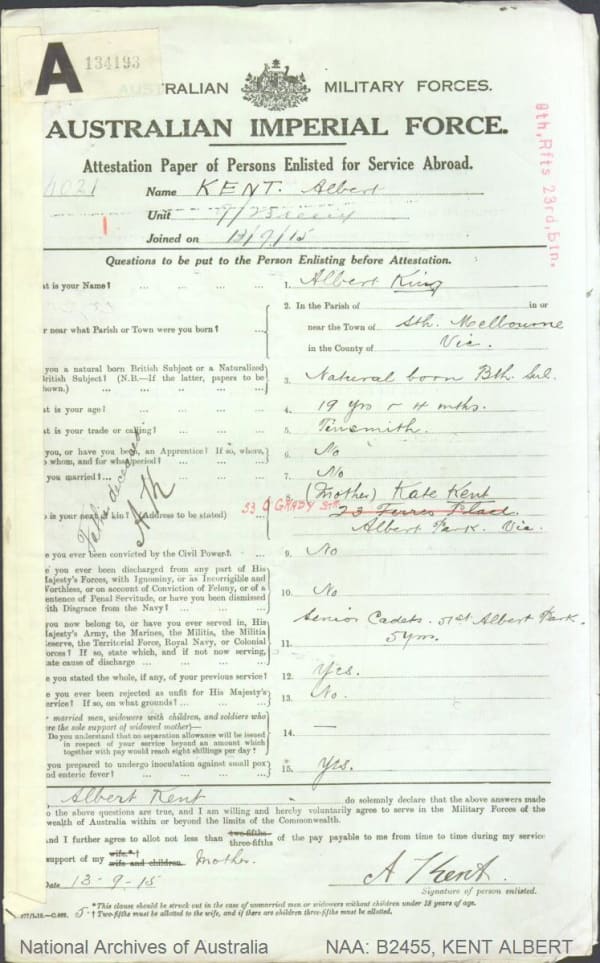 A 134193
AUSTRALIAN MILITARY FORCES.
AUSTRALIAN IMPERIAL FORCE.
Attestation Paper of Persons Enlisted for Service Abroad.
8th, Rfts 23rd, Btn.
4021
Name KENT. Albert
Unit
Joined on 13/9/15
Questions to be put to the Person Enlisting before Attestation.
at is your Name? ... ... ... ... 1. Albert King
2. In the Parish of in or
r near what Parish or Town were you born? ... near the Town of Sth. Melbourne
in the County of Vic.
you a natural born British Subject or a Naturalized
British Subject? (N.B.—If the latter, papers to be
hown.) ... ... ... ... 3. Natural born Bth. Sub.
at is your age? ... ... ... ... 4. 19 yrs & 4 mths.
at is your trade or calling? ... ... ... 5. Tinsmith.
you, or have you been, an Apprentice? If so, where,
o whom, and for what period? ... ... 6. No
you married? ... ... ... ... 7. No
8. (Mother) Kate Kent
o is your next of kin? (Address to be stated) 53 O'GRADY St. 23 Place
Albert Park. Vic.
Father deceased
AK
e you ever been convicted by the Civil Power? ... 9. No
e you ever been discharged from any part of His
Majesty's Forces, with Ignominy, or as Incorrigible and
Worthless, or on account of Conviction of Felony, or of a
Sentence of Penal Servitude, or have you been dismissed
with Disgrace from the Navy? ... ... 10. No
you now belong to, or have you ever served in, His
Majesty's Army, the Marines, the Militia, the Militia
Reserve, the Territorial Force, Royal Navy, or Colonial
Forces? If so, state which, and if not now serving,
tate cause of discharge ... ... ... 11. Senior Cadets. 51st Albert Park.
5 yrs.
e you stated the whole, if any, of your previous service? 12. Yes.
e you ever been rejected as unfit for His Majesty's
ervice? If so, on what grounds? ... ... 13. No.
r married men, widowers with children, and soldiers who
re the sole support of widowed mother)—
Do you understand that no separation allowance will be issued
in respect of your service beyond an amount which
together with pay would reach eight shillings per day? 14. —
you prepared to undergo inoculation against small pox
nd enteric fever? ... ... ... ... *15. Yes.
Albert Kent do solemnly declare that the above answers made
o the above questions are true, and I am willing and hereby voluntarily agree to serve in the Military Forces of the
wealth of Australia within or beyond the limits of the Commonwealth.
And I further agree to allot not less than two-fifths three-fifths of the pay payable to me from time to time during my service
support of my wife.*† wife and children. Mother.
Date 13-9-15 A Kent.
Signature of person enlisted.
*This clause should be struck out in the case of unmarried men or widowers without children under 18 years of age.
† Two-fifths must be allotted to the wife, and if there are children three-fifths must be allotted.
National Archives of Australia NAA: B2455, KENT ALBERT